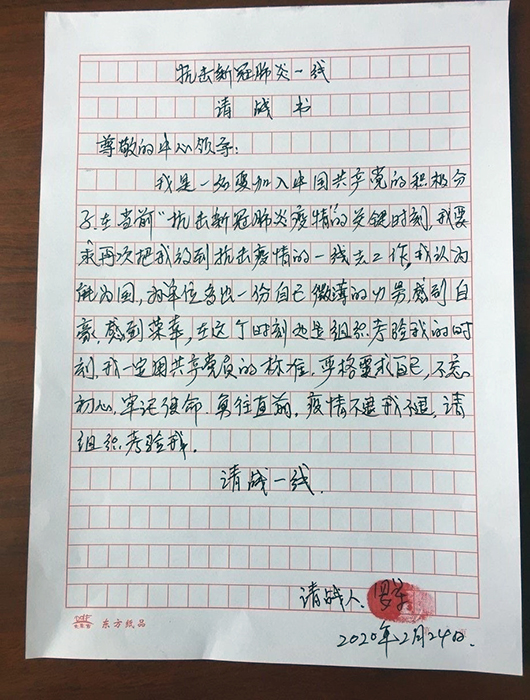 抗击新冠肺炎一线
请战书
尊敬的中心领导:
我是一名要加入中国共产党的积极分
子.在当前"抗击新冠肺炎疫情"的关键时刻,我要
求再次把我派到抗击疫情的一线去工作,我认为
能为国,为单位多出一份自己微薄的力量,感到自
豪,感到荣幸,在这个时刻也是组织考验我的时
刻,我一定用共产党员的标准,严格要求自己,不忘
初心,牢记使命,勇往直前,疫情不退我不退,请
组织考验我.
请战一线.
请战人:
2020年2月24日.
东方纸品